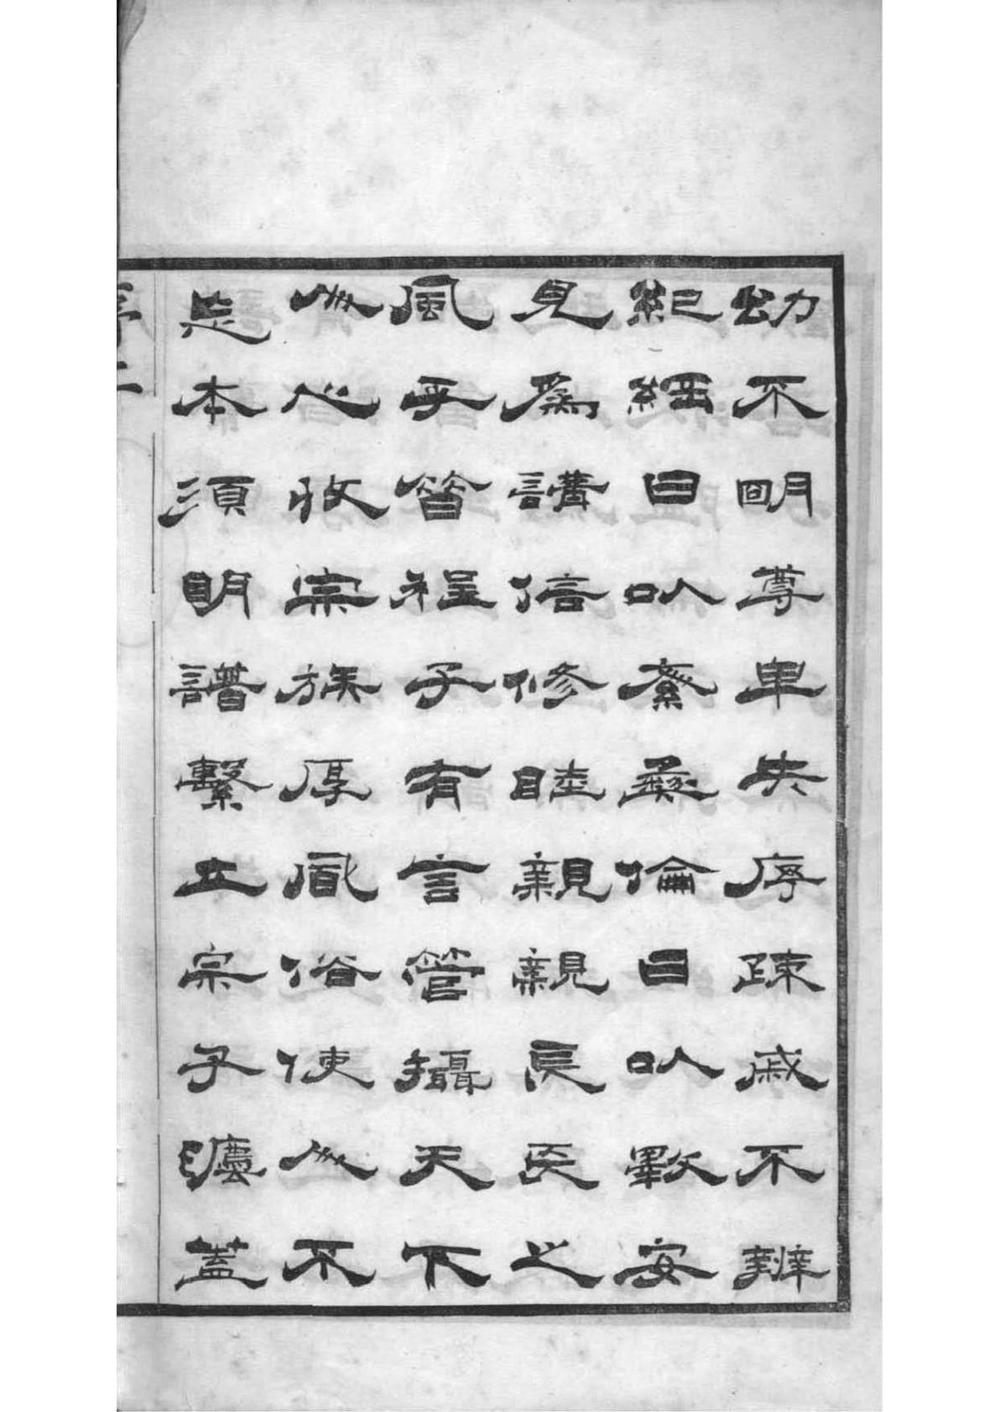 幼不明尊卑失序疎戚不辨
紀綱日以紊彝倫日以斁安
見爲講信修睦親親長長之
風乎昔程子有言管攝天下
人心收宗族厚風俗使人不
忘本須明譜繫立宗子灋蓋